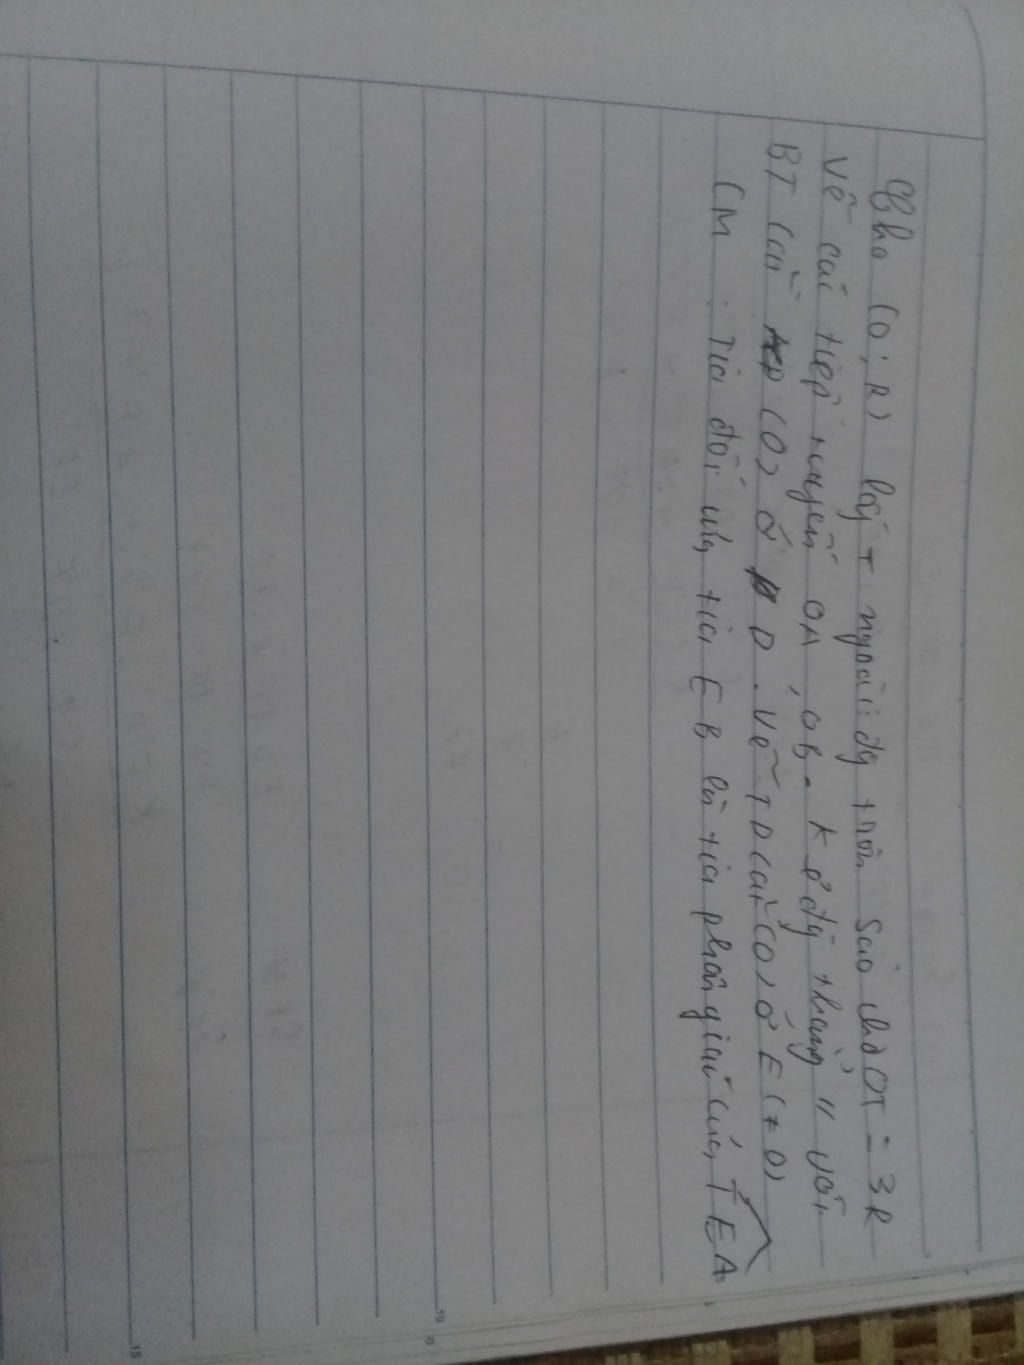 Cho (O; R) lấy T ngoài đg tròn sao cho OT = 3R
Vẽ các tiếp tuyến OA, OB. Kẻ đg thẳng // với
BT cắt (O) ở D. Vẽ TD cắt (O) ở E (≠ D)
CM: Tia đối của tia EB là tia phân giác của TEA
10
15